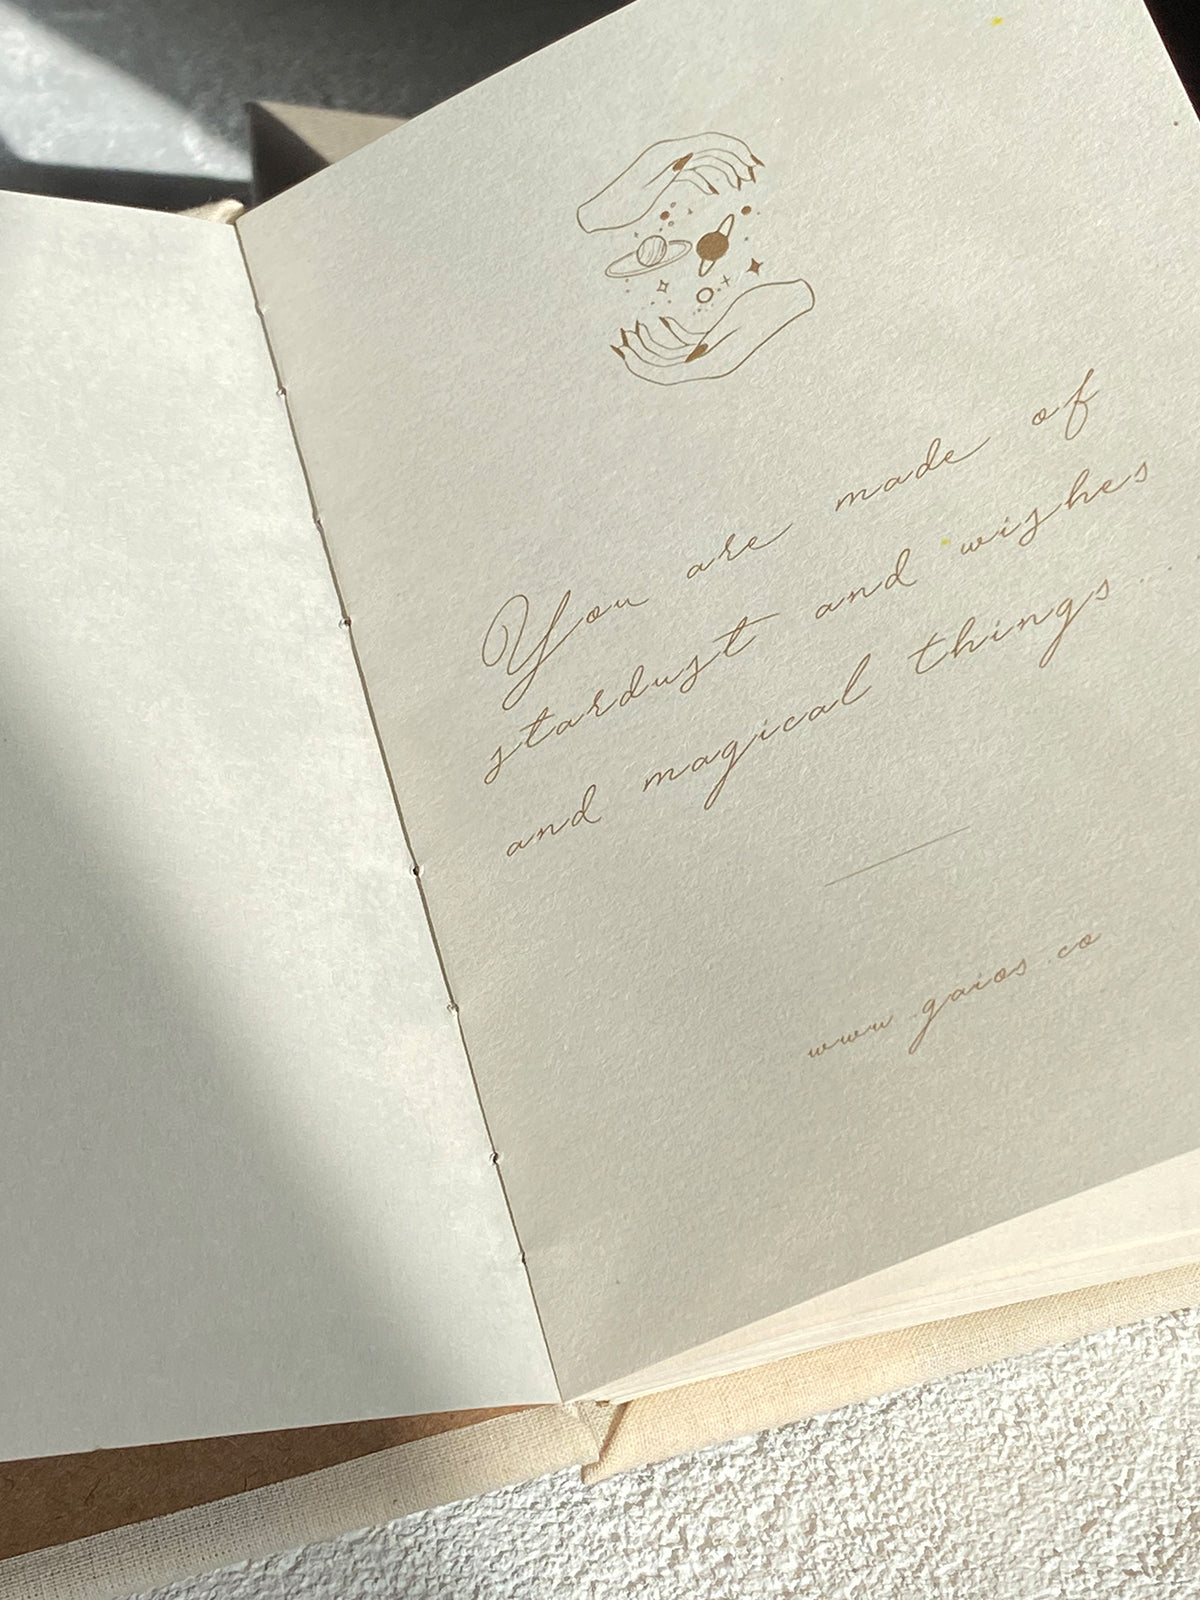 You are made of
stardust and wishes
and magical things...
www.gaios.co